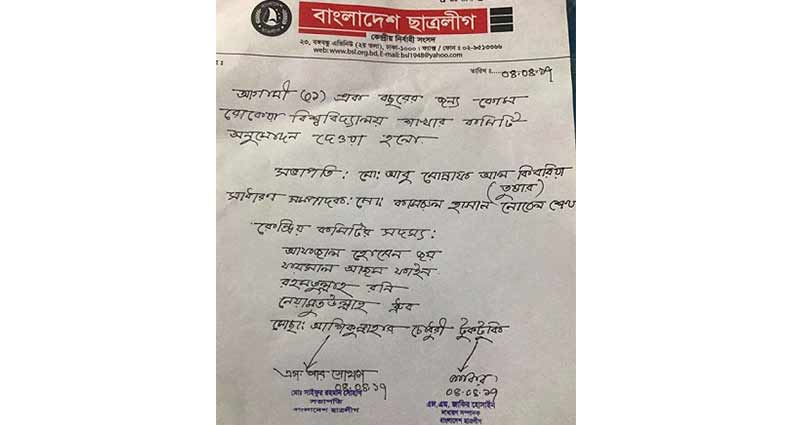 বাংলাদেশ ছাত্রলীগ
কেন্দ্রীয় নির্বাহী সংসদ
২৩, বঙ্গবন্ধু এভিনিউ (২য় তলা), ঢাকা-১০০০। ফ্যাক্স / ফোন : ০২-৯৫১৩৩৬৬
web: www.bsl.org.bd, E-mail: bsl1948@yahoo.com
তারিখ :.....০৪.০৪.১৭
আগামী (০১) এক বছরের জন্য বেগম
রোকেয়া বিশ্ববিদ্যালয় শাখার কমিটি
অনুমোদন দেওয়া হলো।
সভাপতি : মো: আবু মোন্নাফ আল কিবরিয়া
(তুষার)
সাধারণ সম্পাদক: মো: কামরুল হাসান নোবেল শেখ
কেন্দ্রিয় কমিটির সদস্য :
হোসেন জয়
ফয়সাল আজম ফাইন
রহমতুল্লাহ রনি
নেয়ামতউল্লাহ ধ্রুব
মোছা: চৌধুরী টুকটুকি
০৪.০৪.১৭
মোঃ সাইফুর রহমান সোহাগ
সভাপতি
বাংলাদেশ ছাত্রলীগ
০৪.০৪.১৭
এস.এম. জাকির হোসাইন
সাধারণ সম্পাদক
বাংলাদেশ ছাত্রলীগ